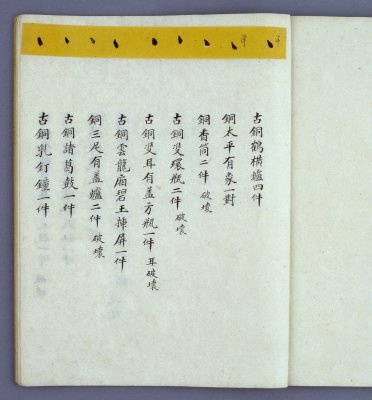 古銅鶴橫爐四件
銅太平有象一對
銅香筒二件 破壞
古銅雙環瓶二件 破壞
古銅雙耳有蓋方瓶一件 耳破壞
古銅雲龍廂碧玉揷屏一件
銅三足有盖爐二件 破壞
古銅諸葛鼓一件
古銅乳釘鐘一件